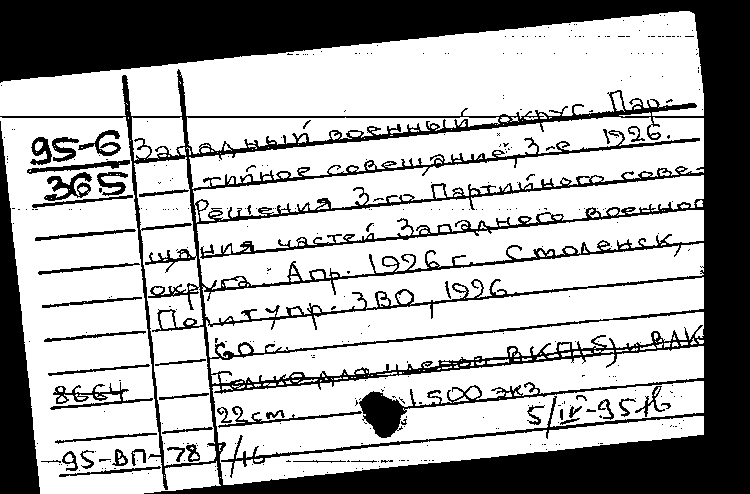 95-6
365
Западный военный округ. Пар-
тийное совещание, 3-е. 1926.
Решения 3-го Партийного сове-
щания частей Западного военног
округа. Апр. 1926 г. Смоленск,
Политупр. ЗВО, 1926.
60 с.
Только для членов ВКП(б) и ВЛК
8664
22 см. 1.500 экз.
5/IV-95
95-ВП-787/16